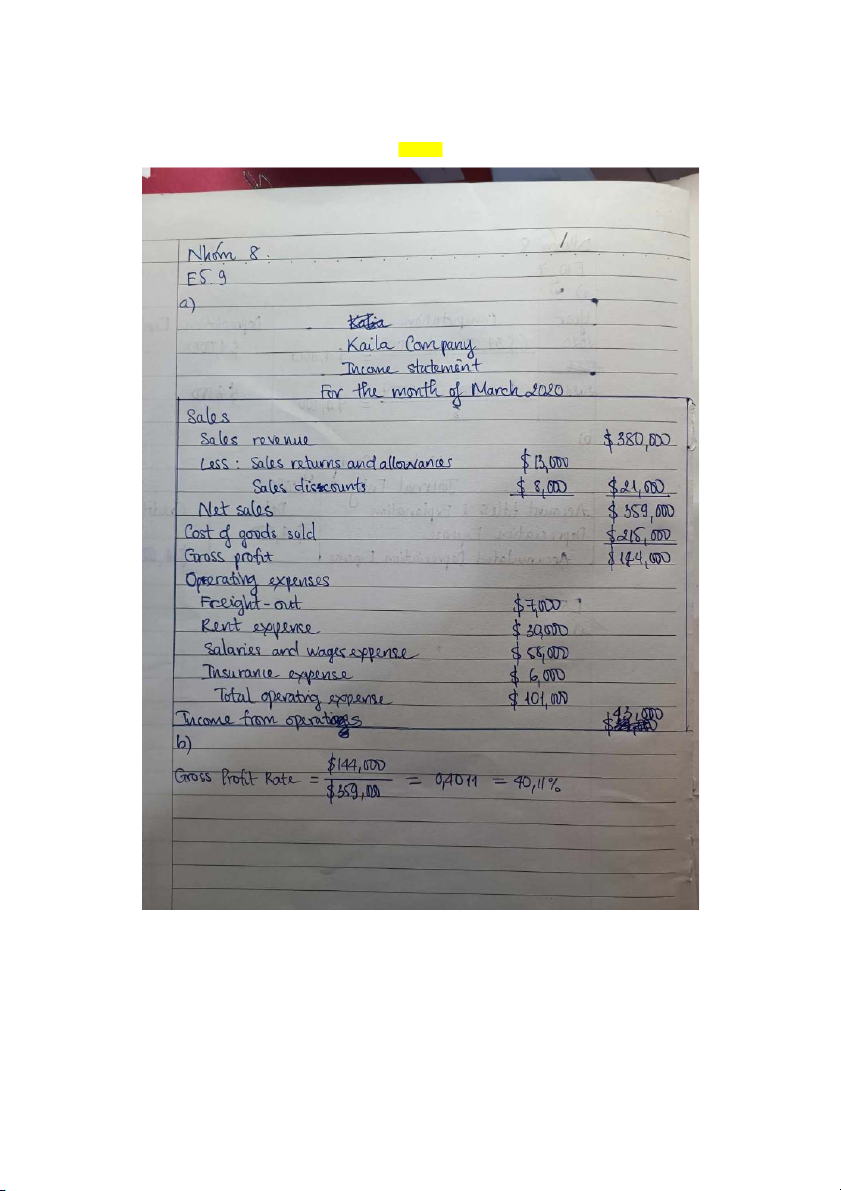 Nhóm 8.
E5.9
a)
Kaila Company
Income statement
For the month of March 2020
Sales
Sales revenue $380,000
Less: Sales returns and allowances $13,000
Sales discounts $8,000 $21,000
Net sales $359,000
Cost of goods sold $215,000
Gross profit $144,000
Operating expenses
Freight-out $7,000
Rent expense $30,000
Salaries and wages expense $58,000
Insurance expense $6,000
Total operating expense $101,000
Income from operations $43,000
b)
Gross Profit Rate = $144,000 / $359,00 = 0,4011 = 40,11%